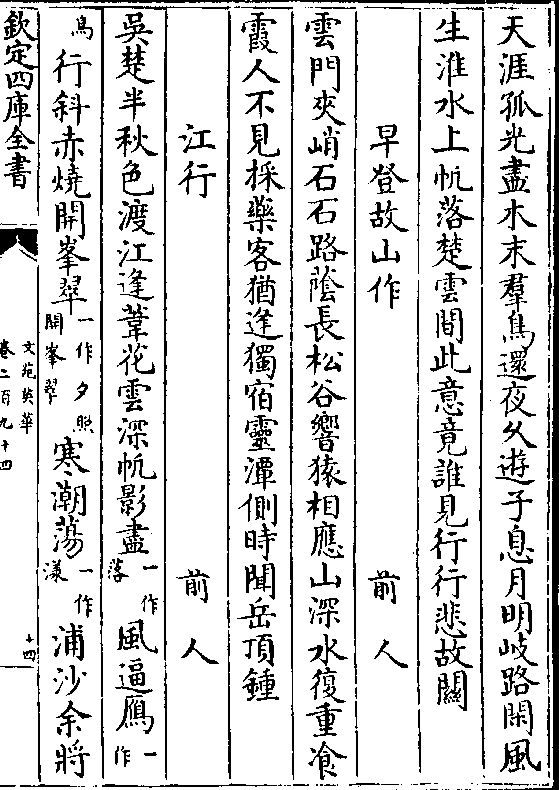 天涯孤光盡木末羣鳥還夜久遊子息月明岐路閑風
生淮水上帆落楚雲間此意竟誰見行行悲故關
早登故山作 前人
雲門夾峭石石路蔭長松谷響猿相應山深水復重飡
霞人不見採藥客猶逢獨宿靈潭側時聞岳頂鍾
江行 前人
吳楚半秋色渡江逢葦花雲深帆影盡一作落風逼鴈一作
鳥行斜赤燒開峯翠一作夕照開峯翠寒潮蕩一作漾浦沙余將
欽定四庫全書
文苑英華
卷二百九十四
十四